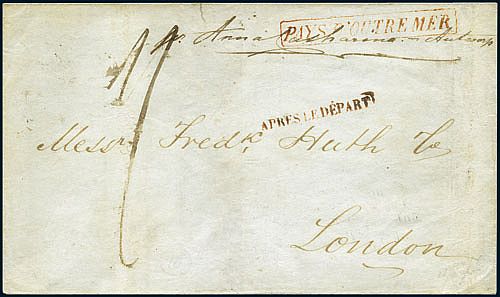 PAYS D'OUTRE MER
pr. Anna Catharina - Antwerp
APRES LE DÉPART
Messrs Fredk. Huth & Co
London